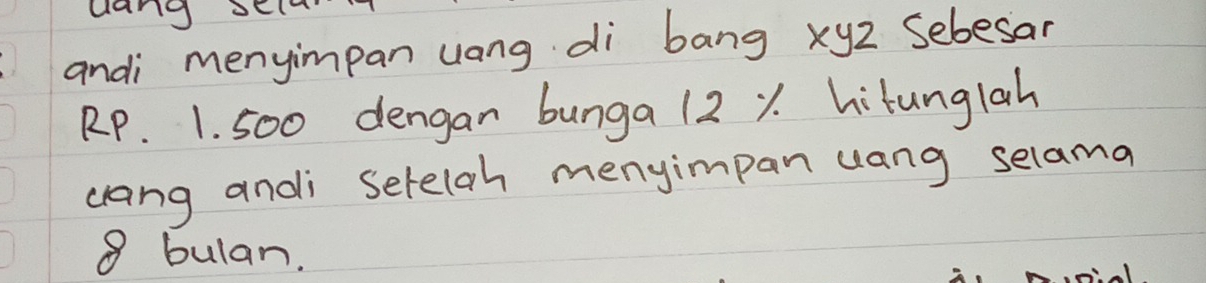 andi menyimpan uang di bang xyz sebesar
RP. 1.500 dengan bunga 12 % hitunglah
uang andi setelah menyimpan uang selama
8 bulan.